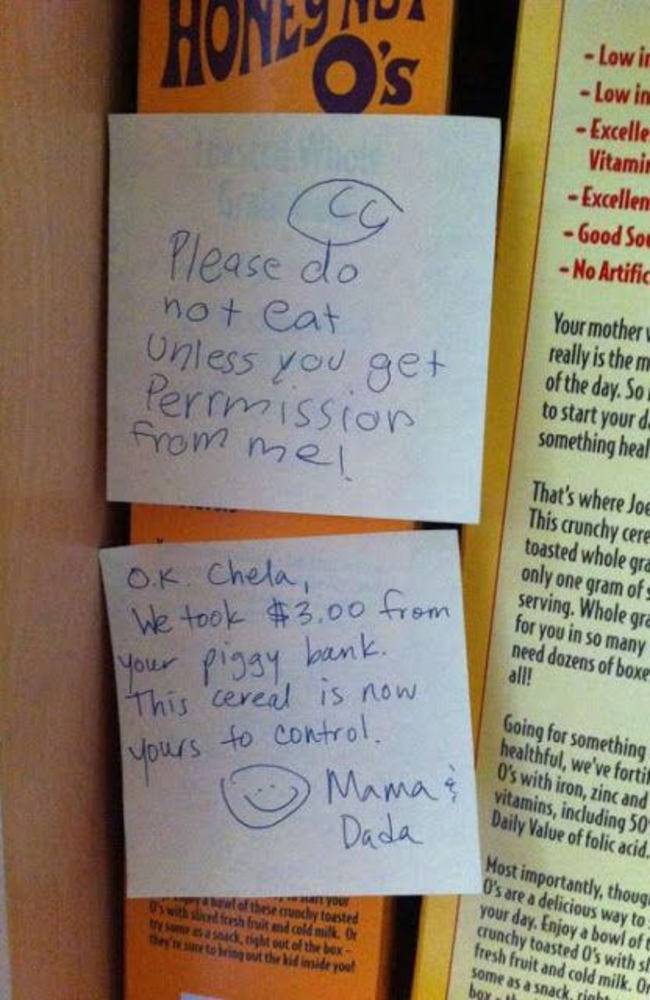 HONEY NUT
O's
Toasted Whole
CC
Please do
not eat
Unless you get
Perrmission
from me!
O.K. Chela,
We took $3.00 from
your piggy bank.
This cereal is now
yours to control.
Mama &
Dada
a bowl of these crunchy toasted
O's with sliced fresh fruit and cold milk. Or
try some as a snack, right out of the box –
they're sure to bring out the kid inside you!
- Low
- Low
-
-
- Good
- No
Your mother
really is the
of the day. So
to start your
something
That's where Joe
This crunchy
toasted whole
only one gram of
serving. Whole
for you in so many
need dozens of
all!
Going for something
healthful, we've
O's with iron, zinc and
vitamins, including
Daily Value of folic acid.
Most importantly,
O's are a delicious way to
your day. Enjoy a bowl of
crunchy toasted O's with
fresh fruit and cold milk. Or
some as a snack,
box